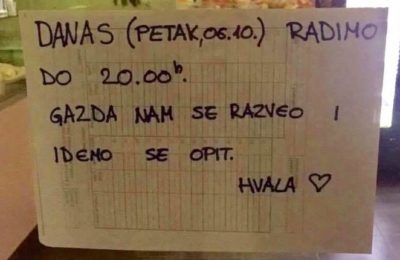 DANAS (PETAK, 06.10.) RADIMO
DO 20.00h.
GAZDA NAM SE RAZVEO I
IDEMO SE OPIT.
HVALA ♡